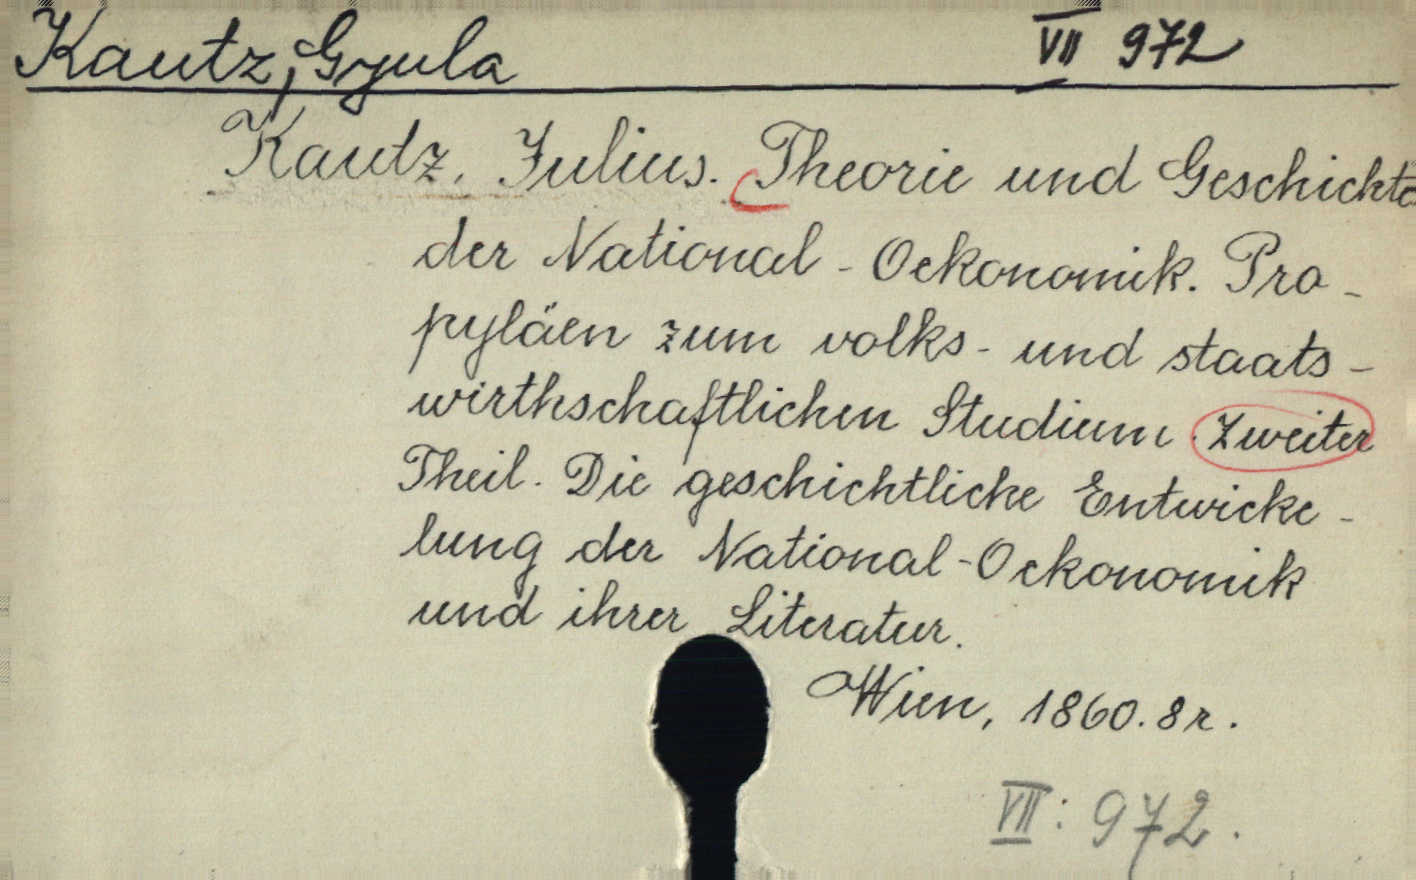 Kautz, Gyula VII 972
Kautz, Julius. Theorie und Geschichte
der National-Oekonomik. Pro-
pyläen zum volks- und staats-
wirthschaftlichen Studium. Zweiter
Theil. Die geschichtliche Entwicke-
lung der National-Oekonomik
und ihrer Literatur.
Wien, 1860. 8r.
VII: 972.